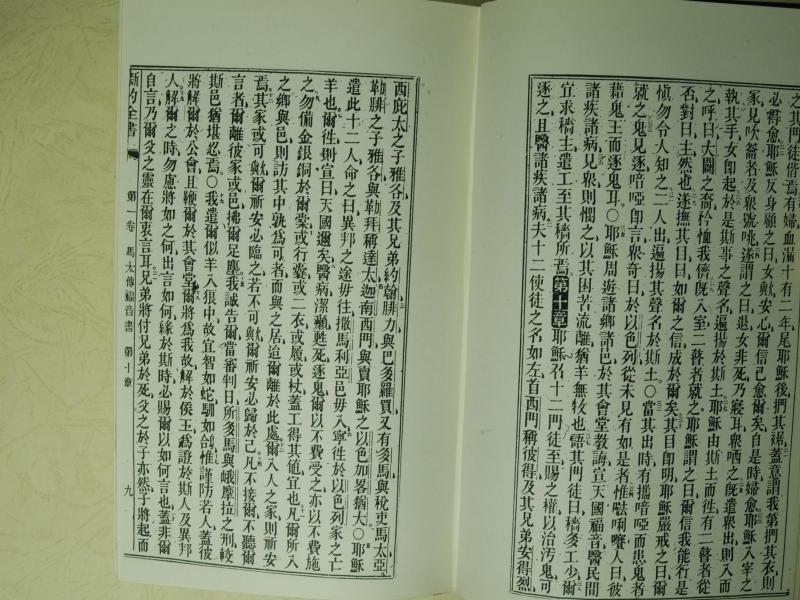 之其門徒偕焉有婦血漏十有二年尾耶穌後捫其裾蓋意謂我第捫其衣則
必得愈耶穌反身顧之曰女歟安心爾信已愈爾矣自是時婦愈耶穌入宰之
家見吹籥者及衆號咷遂謂之曰退女非死乃寢耳衆哂之旣遣衆出則入而
執其手女卽起於是斯事之聲名遍揚於斯土耶穌由斯土而徃有二瞽者從
之呼曰大闢之裔矜恤我儕旣入室二瞽者就之耶穌謂之曰爾信我能行是
否對曰主然也遂撫其目曰如爾之信成於爾矣其目卽明耶穌嚴戒之曰爾
愼勿令人知之二人出遍揚其聲名於斯土○當其出時有攜喑啞而患鬼者
就之鬼見逐喑啞卽言衆奇曰於以色列從未見有如是者惟𠵽唎㘔人曰彼
藉鬼王而逐鬼耳○耶穌周遊諸鄉諸邑於其會堂教誨宣天國福音醫民間
諸疾諸病見衆則憫之以其困苦流離猶羊無牧也語其門徒曰穡多工少爾
宜求穡主遣工至其穡所焉第十章耶穌召十二門徒至賜之權以治汚鬼可
逐之且醫諸疾諸病夫十二使徒之名如左首西門稱彼得及其兄弟安得烈
西庇太之子雅各及其兄弟約翰腓力與巴多羅買又有多馬與稅吏馬太亞
勒腓之子雅各與勒拜稱達太迦南西門與賣耶穌之以色加畧猶大○耶穌
遣此十二人命之曰異邦之途毋往撒馬利亞邑毋入寧徃於以色列家之亡
羊也爾徃則宣曰天國邇矣醫病潔癩甦死逐鬼爾以不費受之亦以不費施
之勿備金銀銅於爾橐或行囊或二衣或履或杖蓋工得其値宜也凡爾所入
之鄉與邑則訪其中孰爲可者而與之居迨爾離於此處爾入人之家則祈安
焉其家或可歟爾祈安必臨之若不可歟爾祈安必歸於己凡不接爾不聽爾
言者爾離彼家或邑拂爾足塵我誠告爾當審判日所多馬與峨摩拉之刑較
斯邑猶堪忍焉○我遣爾似羊入狼中故宜智如蛇馴如鴿惟謹防若人蓋彼
將解爾於公會且鞭爾於其會堂爾將爲我故解於侯王爲證於斯人及異邦
人解爾之時勿慮將如之何出言如何緣於斯時必賜爾以如何言也蓋非爾
自言乃爾父之靈在爾衷言耳兄弟將付兄弟於死父之於子亦然子將起而
新約全書 第一卷 馬太傳福音書 第十章 九